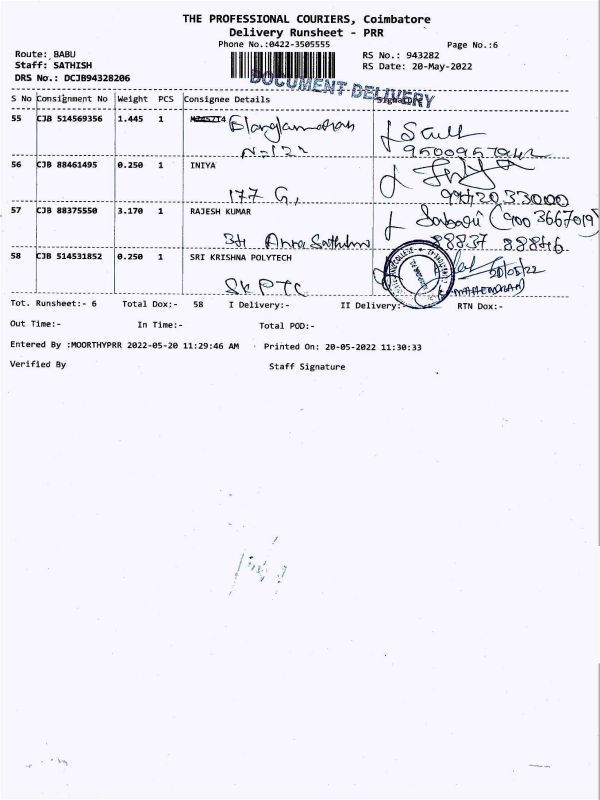 THE PROFESSIONAL COURIERS, Coimbatore
Delivery Runsheet - PRR
Phone No.:0422-3505555 Page No.:6
Route: BABU RS No.: 943282
Staff: SATHISH RS Date: 20-May-2022
DRS No.: DCJB94328206
DOCUMENT DELIVERY
S No Consignment No Weight PCS Consignee Details Signature
55 CJB 514569356 1.445 1
56 CJB 88461495 0.250 1 INIYA
177 G,
57 CJB 88375550 3.170 1 RAJESH KUMAR
88837 88846
58 CJB 514531852 0.250 1 SRI KRISHNA POLYTECH
SKPTC
Tot. Runsheet:- 6 Total Dox:- 58 I Delivery:- II Delivery:- RTN Dox:-
Out Time:- In Time:- Total POD:-
Entered By :MOORTHYPRR 2022-05-20 11:29:46 AM Printed On: 20-05-2022 11:30:33
Verified By Staff Signature